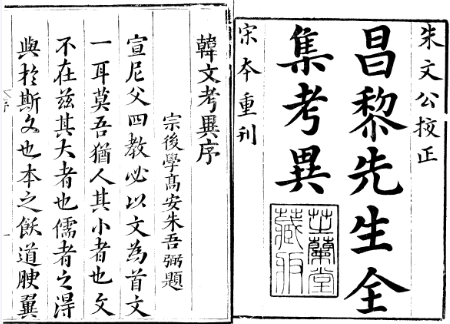 朱文公挍正
昌黎先生全
集考異
宋本重刋
芷蘭堂
藏版
韓文考異序
宗後學高安朱吾弼題
宣尼父四教必以文為首文
一耳莫吾猶人其小者也文
不在兹其大者也儒者之淂
與扵斯文也本之飫道腴翼